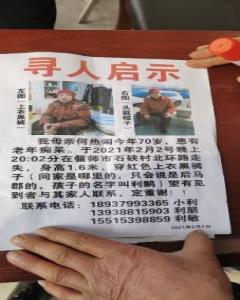 寻人启示
左图（上衣黑裤）
右图（头戴帽子）
我母亲何热闹今年70岁，患有
老年痴呆。于2021年2月2号晚上
20:02分在偃师市石硖村北环路走
失，身高1.6米，穿红色上衣黑裤
子（问家是哪里的，只会说是后马
郡的，孩子的名字叫利鹏）望有见
到者与其家人联系，定重谢！
联系电话：18937993365 小利
13938815903 利朋
15515398859 利敏
2021年2月2日